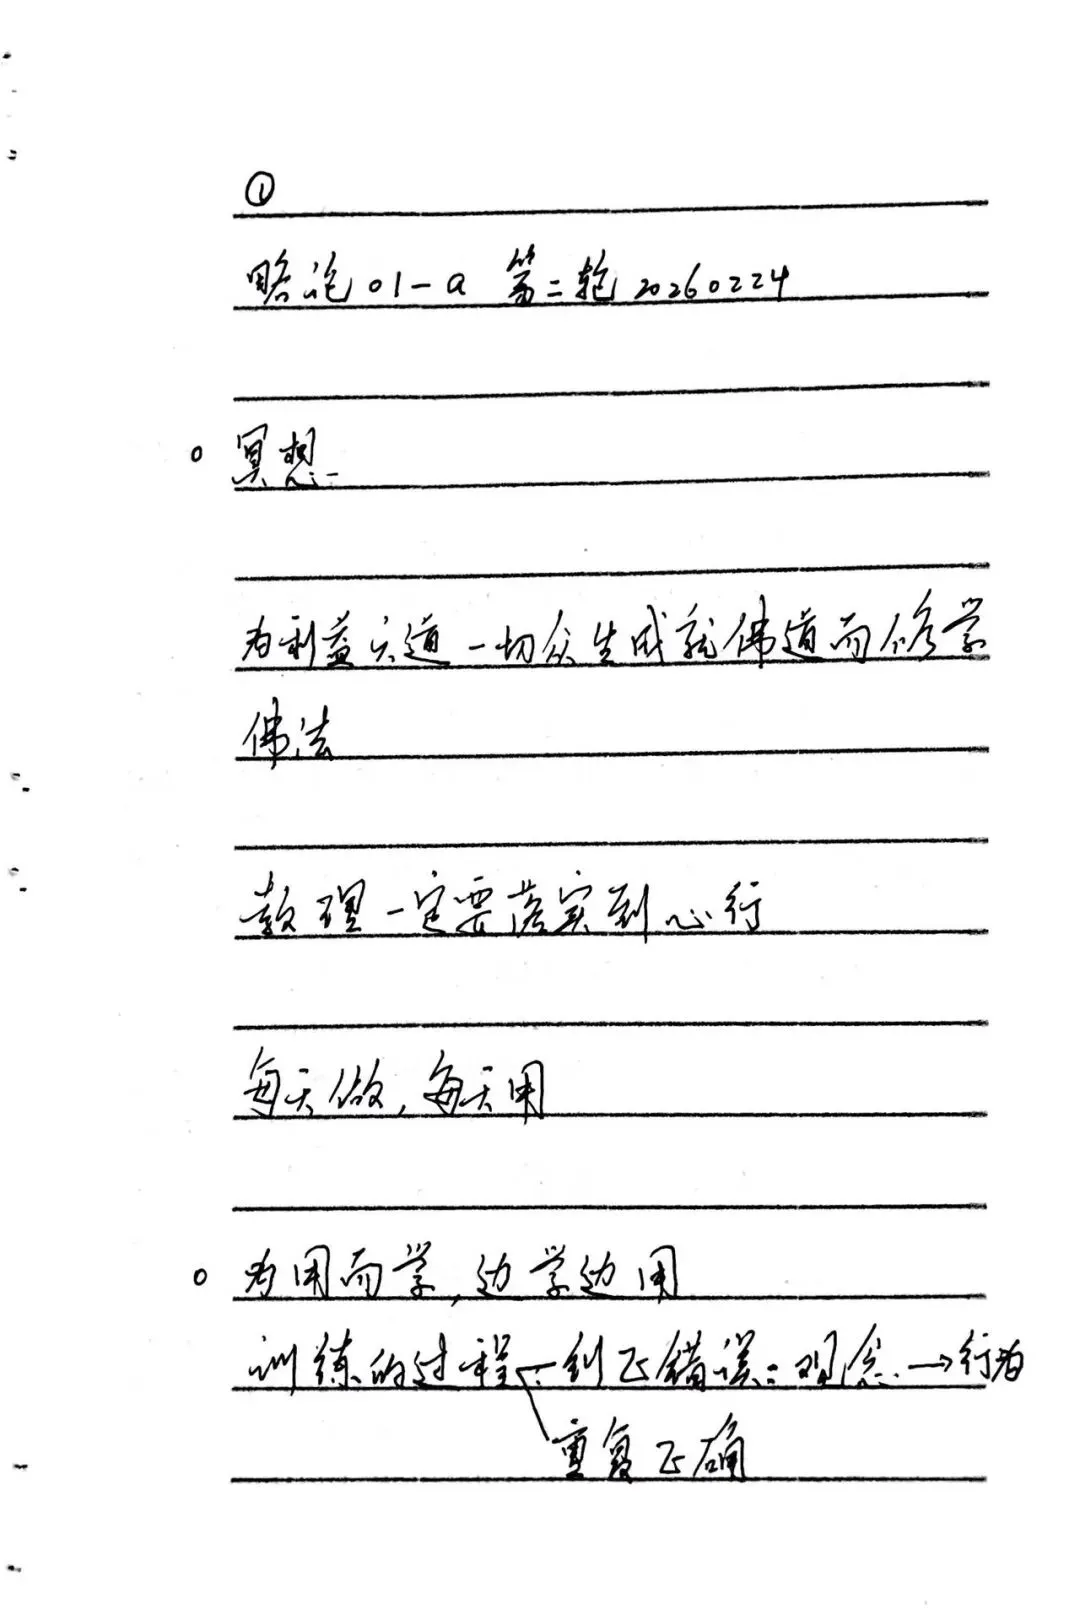 ①
略论01-a 第二轮 20260224
冥想
为利益六道一切众生成就佛道而修学
佛法
教理一定要落实到心行
每天做,每天用
为用而学,边学边用
训练的过程 纠正错误:观念→行为
重复正确